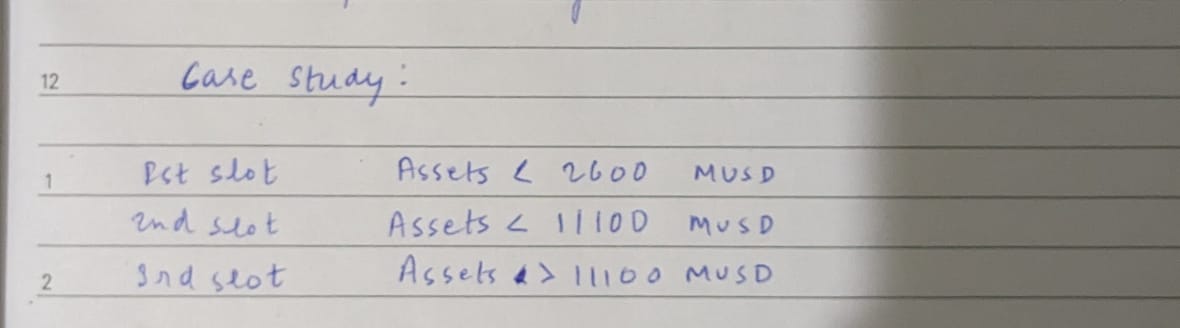 12 Case study:
1 1st slot Assets < 2600 MUSD
2nd slot Assets < 11100 MUSD
2 3rd slot Assets > 11100 MUSD